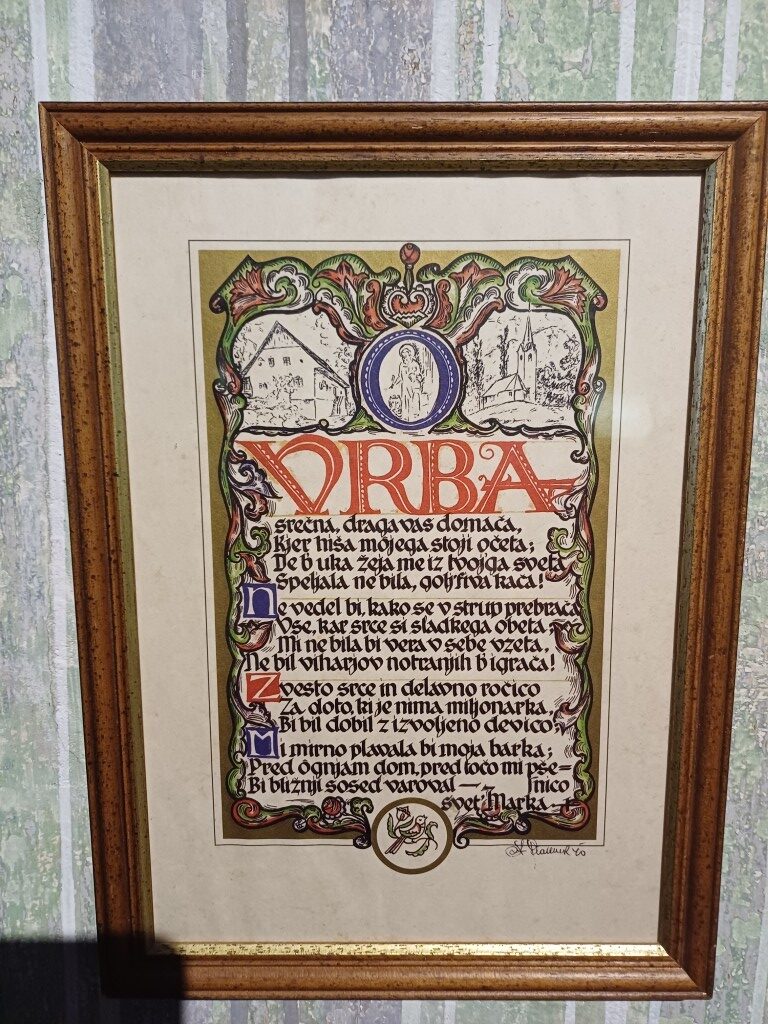 O
VRBA
srečna, draga vas domača,
Kjer hiša mojega stoji očeta;
De b uka žeja me iz tvojga sveta
Speljala ne bila, goljfiva kača!
Ne vedel bi, kako se v strup prebrača
Vse, kar srce si sladkega obeta.
Mi ne bila bi vera v sebe vzeta,
Ne bil viharjov notranjih b igrača!
Zvesto srce in delavno ročico
Za doto, ki je nima miljonarka,
Bi bil dobil z izvoljeno devico;
Mi mirno plavala bi moja barka;
Pred ôgnjam dom, pred točo mi pše=
Bi bližnji sosed varoval — šnico
svet' Marka.